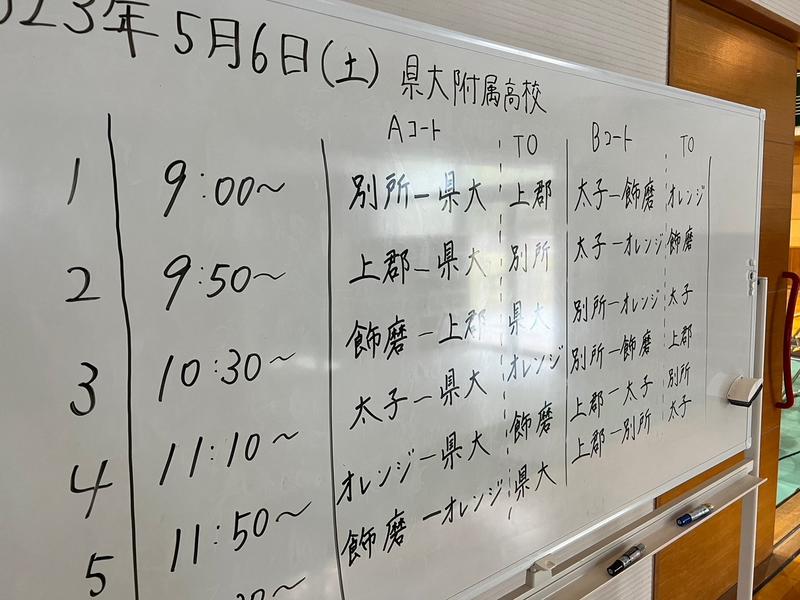 023年 5月6日(土) 県大附属高校
Aコート TO Bコート TO
1 9:00~ 別所ー県大 上郡 太子ー飾磨 オレンジ
2 9:50~ 上郡ー県大 別所 太子ーオレンジ 飾磨
3 10:30~ 飾磨ー上郡 県大 別所ーオレンジ 太子
4 11:10~ 太子ー県大 オレンジ 別所ー飾磨 上郡
5 11:50~ オレンジー県大 飾磨 上郡ー太子 別所
飾磨ーオレンジ 県大 上郡ー別所 太子